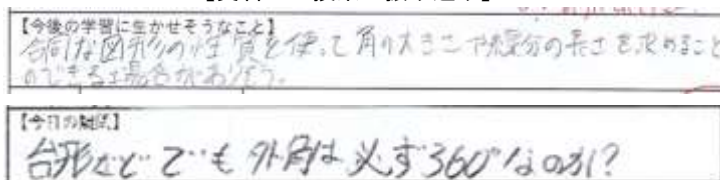 【今後の学習に生かせそうなこと】
合同な図形の性質を使って角の大きさや線分の長さを求めること
のできる場合がありそう。
【今日の疑問】
台形などでも外角は必ず360°なのか?